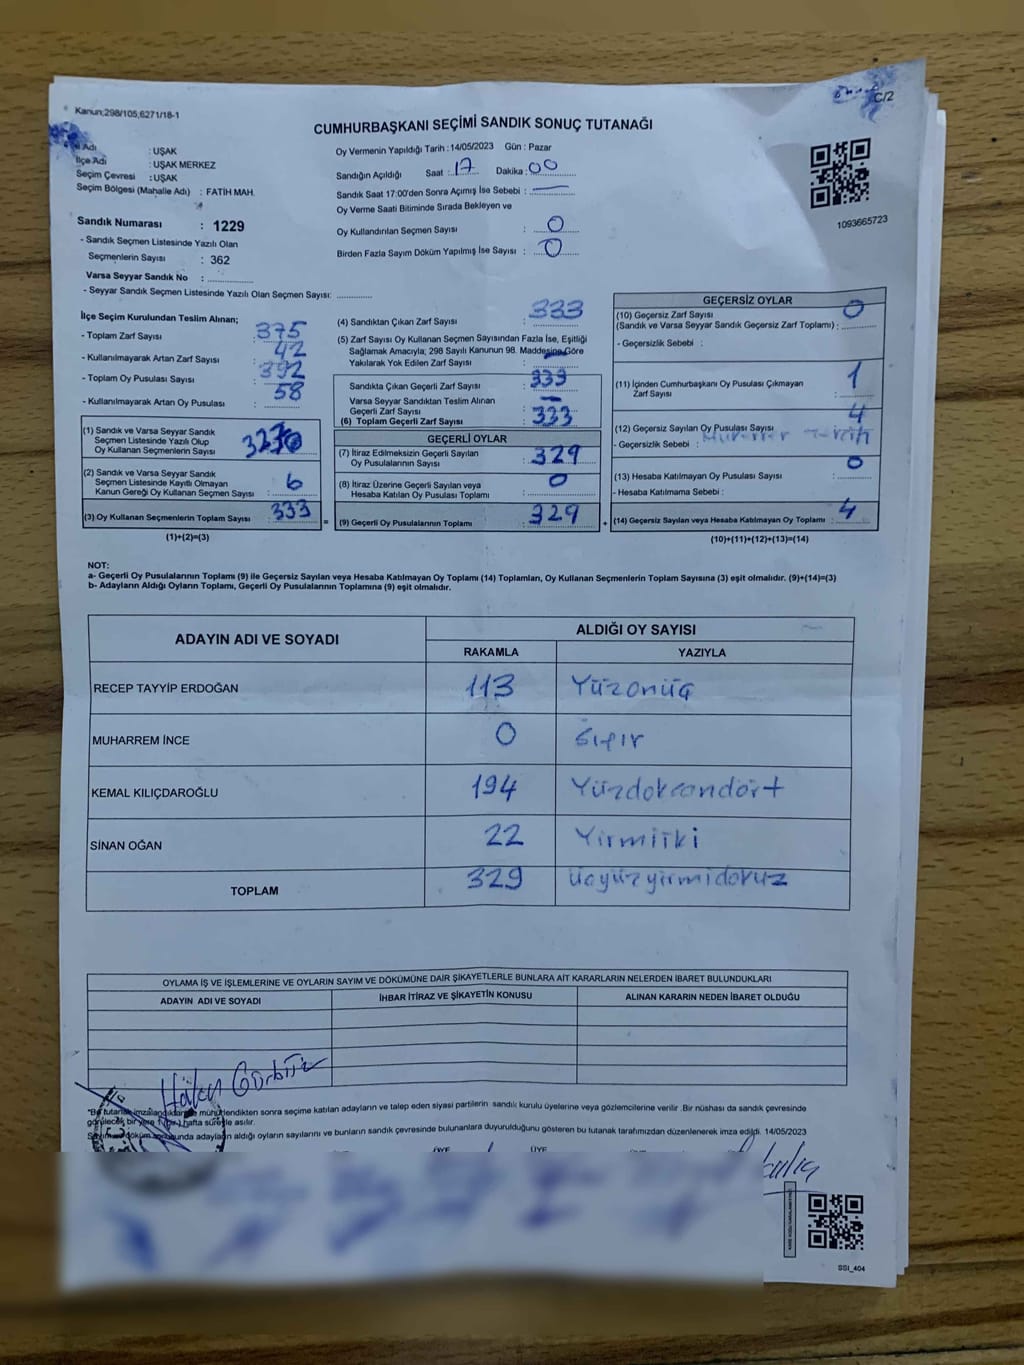 Kanun;298/105,6271/18-1
C/2
CUMHURBAŞKANI SEÇİMİ SANDIK SONUÇ TUTANAĞI
Adı : UŞAK
İlçe Adı : UŞAK MERKEZ
Seçim Çevresi : UŞAK
Seçim Bölgesi (Mahalle Adı) : FATİH MAH.
Sandık Numarası : 1229
- Sandık Seçmen Listesinde Yazılı Olan
Seçmenlerin Sayısı : 362
Varsa Seyyar Sandık No :
- Seyyar Sandık Seçmen Listesinde Yazılı Olan Seçmen Sayısı:
Oy Vermenin Yapıldığı Tarih : 14/05/2023 Gün : Pazar
Sandığın Açıldığı Saat : 17 Dakika : 00
Sandık Saat 17:00'den Sonra Açımış İse Sebebi : —
Oy Verme Saati Bitiminde Sırada Bekleyen ve
Oy Kullandırılan Seçmen Sayısı : 0
Birden Fazla Sayım Döküm Yapılmış İse Sayısı : 0
1093665723
İlçe Seçim Kurulundan Teslim Alınan;
- Toplam Zarf Sayısı : 375
- Kullanılmayarak Artan Zarf Sayısı : 42
- Toplam Oy Pusulası Sayısı : 392
- Kullanılmayarak Artan Oy Pusulası : 58
(1) Sandık ve Varsa Seyyar Sandık
Seçmen Listesinde Yazılı Olup
Oy Kullanan Seçmenlerin Sayısı : 327
(2) Sandık ve Varsa Seyyar Sandık
Seçmen Listesinde Kayıtlı Olmayan
Kanun Gereği Oy Kullanan Seçmen Sayısı : 6
(3) Oy Kullanan Seçmenlerin Toplam Sayısı : 333
(1)+(2)=(3)
(4) Sandıktan Çıkan Zarf Sayısı : 333
(5) Zarf Sayısı Oy Kullanan Seçmen Sayısından Fazla İse, Eşitliği
Sağlamak Amacıyla; 298 Sayılı Kanunun 98. Maddesine Göre
Yakılarak Yok Edilen Zarf Sayısı : —
Sandıkta Çıkan Geçerli Zarf Sayısı : 333
Varsa Seyyar Sandıktan Teslim Alınan
Geçerli Zarf Sayısı : —
(6) Toplam Geçerli Zarf Sayısı : 333
GEÇERLİ OYLAR
(7) İtiraz Edilmeksizin Geçerli Sayılan
Oy Pusulalarının Sayısı : 329
(8) İtiraz Üzerine Geçerli Sayılan veya
Hesaba Katılan Oy Pusulası Toplamı : 0
(9) Geçerli Oy Pusulalarının Toplamı : 329
GEÇERSİZ OYLAR
(10) Geçersiz Zarf Sayısı
(Sandık ve Varsa Seyyar Sandık Geçersiz Zarf Toplamı) : 0
- Geçersizlik Sebebi :
(11) İçinden Cumhurbaşkanı Oy Pusulası Çıkmayan
Zarf Sayısı : 1
(12) Geçersiz Sayılan Oy Pusulası Sayısı : 4
- Geçersizlik Sebebi :
(13) Hesaba Katılmayan Oy Pusulası Sayısı : 0
- Hesaba Katılmama Sebebi :
(14) Geçersiz Sayılan veya Hesaba Katılmayan Oy Toplamı : 4
(10)+(11)+(12)+(13)=(14)
NOT:
a- Geçerli Oy Pusulalarının Toplamı (9) ile Geçersiz Sayılan veya Hesaba Katılmayan Oy Toplamı (14) Toplamları, Oy Kullanan Seçmenlerin Toplam Sayısına (3) eşit olmalıdır. (9)+(14)=(3)
b- Adayların Aldığı Oyların Toplamı, Geçerli Oy Pusulalarının Toplamına (9) eşit olmalıdır.
ADAYIN ADI VE SOYADI
ALDIĞI OY SAYISI
RAKAMLA YAZIYLA
RECEP TAYYİP ERDOĞAN 113 Yüzonüç
MUHARREM İNCE 0 Sıfır
KEMAL KILIÇDAROĞLU 194 Yüzdoksandört
SİNAN OĞAN 22 Yirmiiki
TOPLAM 329 Üçyüzyirmidokuz
OYLAMA İŞ VE İŞLEMLERİNE VE OYLARIN SAYIM VE DÖKÜMÜNE DAİR ŞİKAYETLERLE BUNLARA AİT KARARLARIN NELERDEN İBARET BULUNDUKLARI
ADAYIN ADI VE SOYADI İHBAR İTİRAZ VE ŞİKAYETİN KONUSU ALINAN KARARIN NEDEN İBARET OLDUĞU
mühürlendikten sonra seçime katılan adayların ve talep eden siyasi partilerin sandık kurulu üyelerine veya gözlemcilerine verilir. Bir nüshası da sandık çevresinde
hafta süreyle asılır.
adayların aldığı oyların sayılarını ve bunların sandık çevresinde bulunanlara duyurulduğunu gösteren bu tutanak tarafımızdan düzenlenerek imza edildi. 14/05/2023
ÜYE ÜYE
SSI_404